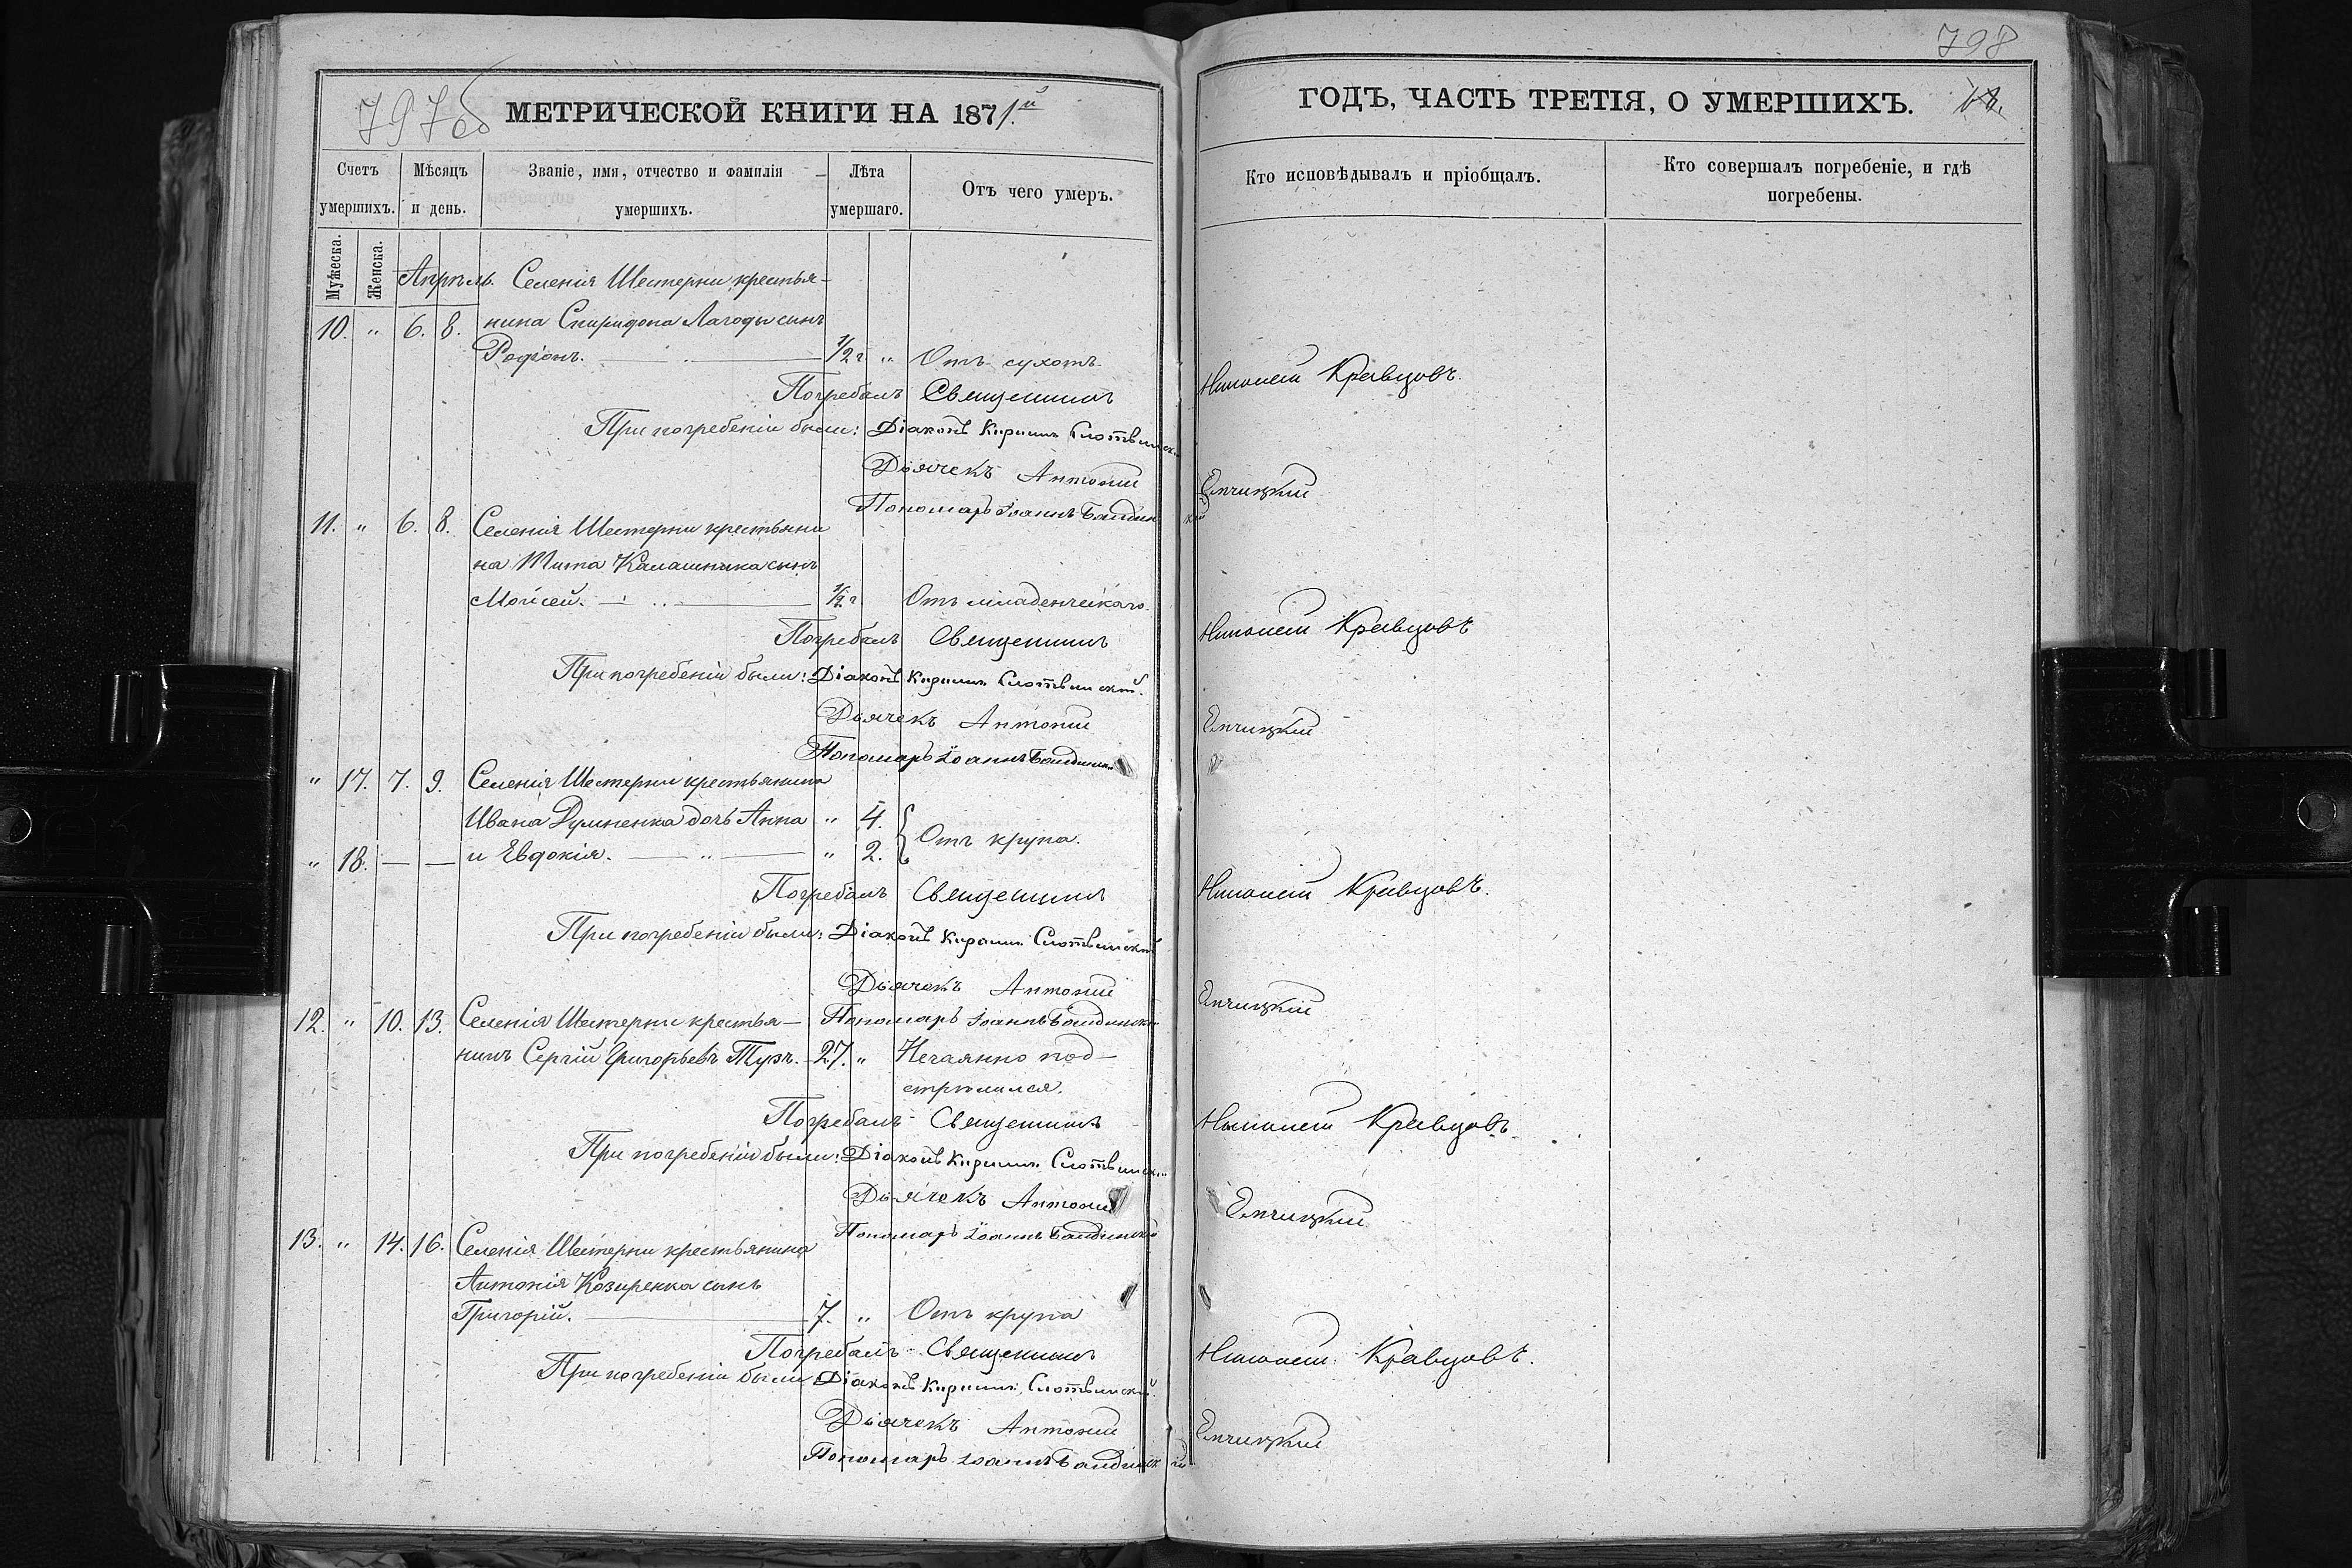 797об
МЕТРИЧЕСКОЙ КНИГИ НА 1871й
Счетъ умершихъ.
Мѣсяцъ и день.
Званіе, имя, отчество и фамилія умершихъ.
Лѣта умершаго.
Отъ чего умеръ.
Мужеска.
Женска.
Апрѣль. Селенія Шестерни крестья-
10. " 6. 8. нина Спиридона Лагоды сынъ
Родіонъ. 1/2 г. " Отъ сухотъ
Погребалъ Священникъ
При погребеніи были: Діаконъ Кириллъ
Дьячекъ Антоній
Пономарь Іоаннъ
11. " 6. 8. Селенія Шестерни крестьяни
на Тита Калашника сынъ
Моисей. 1/2 г. Отъ младенческаго.
Погребалъ Священникъ
При погребеніи были: Діаконъ Кириллъ
Дьячекъ Антоній
Пономарь Іоаннъ
" 17. 7. 9. Селенія Шестерни крестьянина
Ивана дочь Анна " 4.
Отъ крупа.
" 18. — — и Евдокія. " 2.
Погребалъ Священникъ
При погребеніи были: Діаконъ Кириллъ
Дьячекъ Антоній
12. " 10. 13. Селенія Шестерни крестья- Пономарь Іоаннъ
нинъ Сергій Григорьевъ Тузъ. 27. " Нечаянно под-
стрѣлился.
Погребалъ Священникъ
При погребеніи были: Діаконъ Кириллъ
Дьячекъ Антоній
Пономарь Іоаннъ
13. " 14. 16. Селенія Шестерни крестьянина
Антонія Козиренка сынъ
Григорій. 7. " Отъ крупа
Погребалъ Священникъ
При погребеніи были: Діаконъ Кириллъ
Дьячекъ Антоній
Пономарь Іоаннъ
798
ГОДЪ, ЧАСТЬ ТРЕТІЯ, О УМЕРШИХЪ.
Кто исповѣдывалъ и пріобщалъ.
Кто совершалъ погребеніе, и гдѣ
погребены.
Кравцовъ.
Кравцовъ
Кравцовъ.
Кравцовъ.
Кравцовъ.